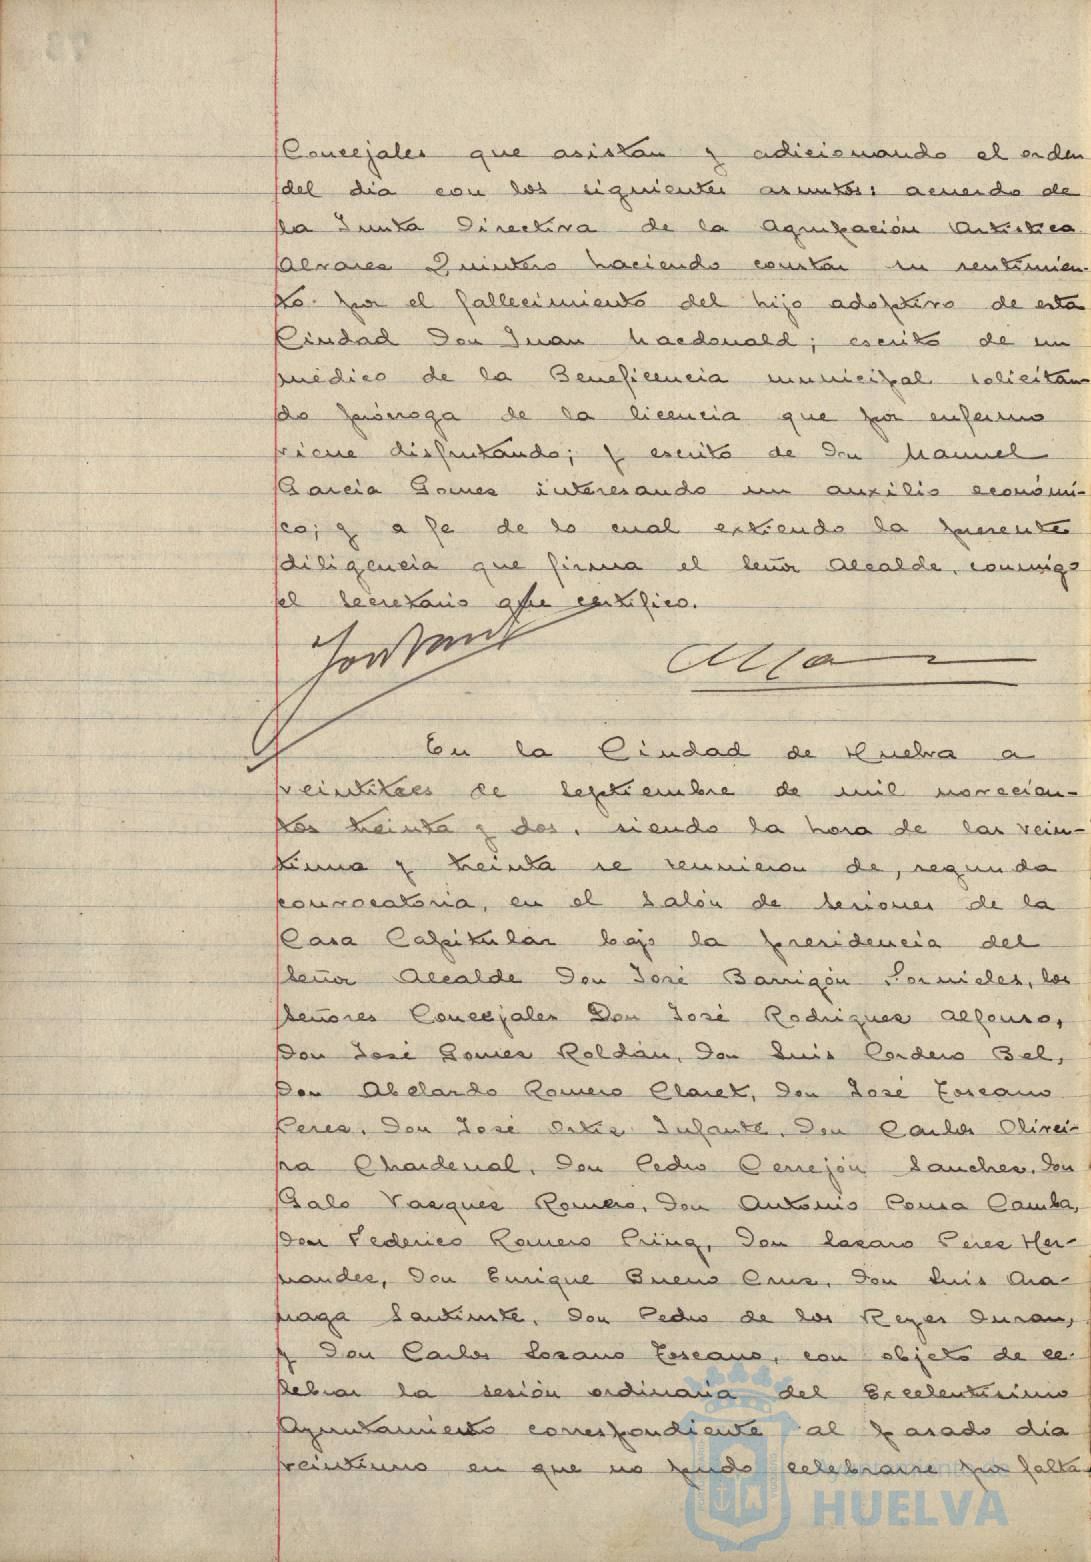 Concejales que asistan y adicionando el orden
del dia con los siguientes asuntos: acuerdo de
la Junta Directiva de la Agrupación Artistica
Alvares Quintero haciendo constar su sentimien-
to por el fallecimiento del hijo adoptivo de esta
Ciudad Don Juan Macdonald; escrito de un
médico de la Beneficencia municipal solicitan-
do prórroga de la licencia que por enfermo
viene disfrutando; y escrito de Don Manuel
Garcia Gomez interesando un auxilio económi-
co; y a fe de lo cual extiendo la presente
diligencia que firma el Señor Alcalde, conmigo
el Secretario que certifico.
En la Ciudad de Huelva a
veintitres de Septiembre de mil novecien-
tos treinta y dos, siendo la hora de las vein-
tiuna y treinta se reunieron de, segunda
convocatoria, en el Salón de Sesiones de la
Casa Capitular bajo la presidencia del
Señor Alcalde Don José Barrigón Fornieles, los
Señores Concejales Don José Rodriguez Alfonso,
Don José Gomez Roldán, Don Luis Cordero Bel,
Don Abelardo Romero Claret, Don José Toscano
Perez, Don José Ortiz Infante, Don Carlos Olivei-
ra Chardenal, Don Pedro Cerrejón Sanchez, Don
Galo Vazquez Romero, Don Antonio Pousa Camba,
Don Federico Romero Pring, Don Lazaro Perez Her-
nandez, Don Enrique Bueno Cruz, Don Luis Ara-
naga Santiuste, Don Pedro de los Reyes Duran,
y Don Carlos Lozano Toscano, con objeto de ce-
lebrar la sesión ordinaria del Excelentisimo
Ayuntamiento correspondiente al pasado dia
veintiuno en que no pudo celebrarse por falta
Ayuntamiento de
HUELVA